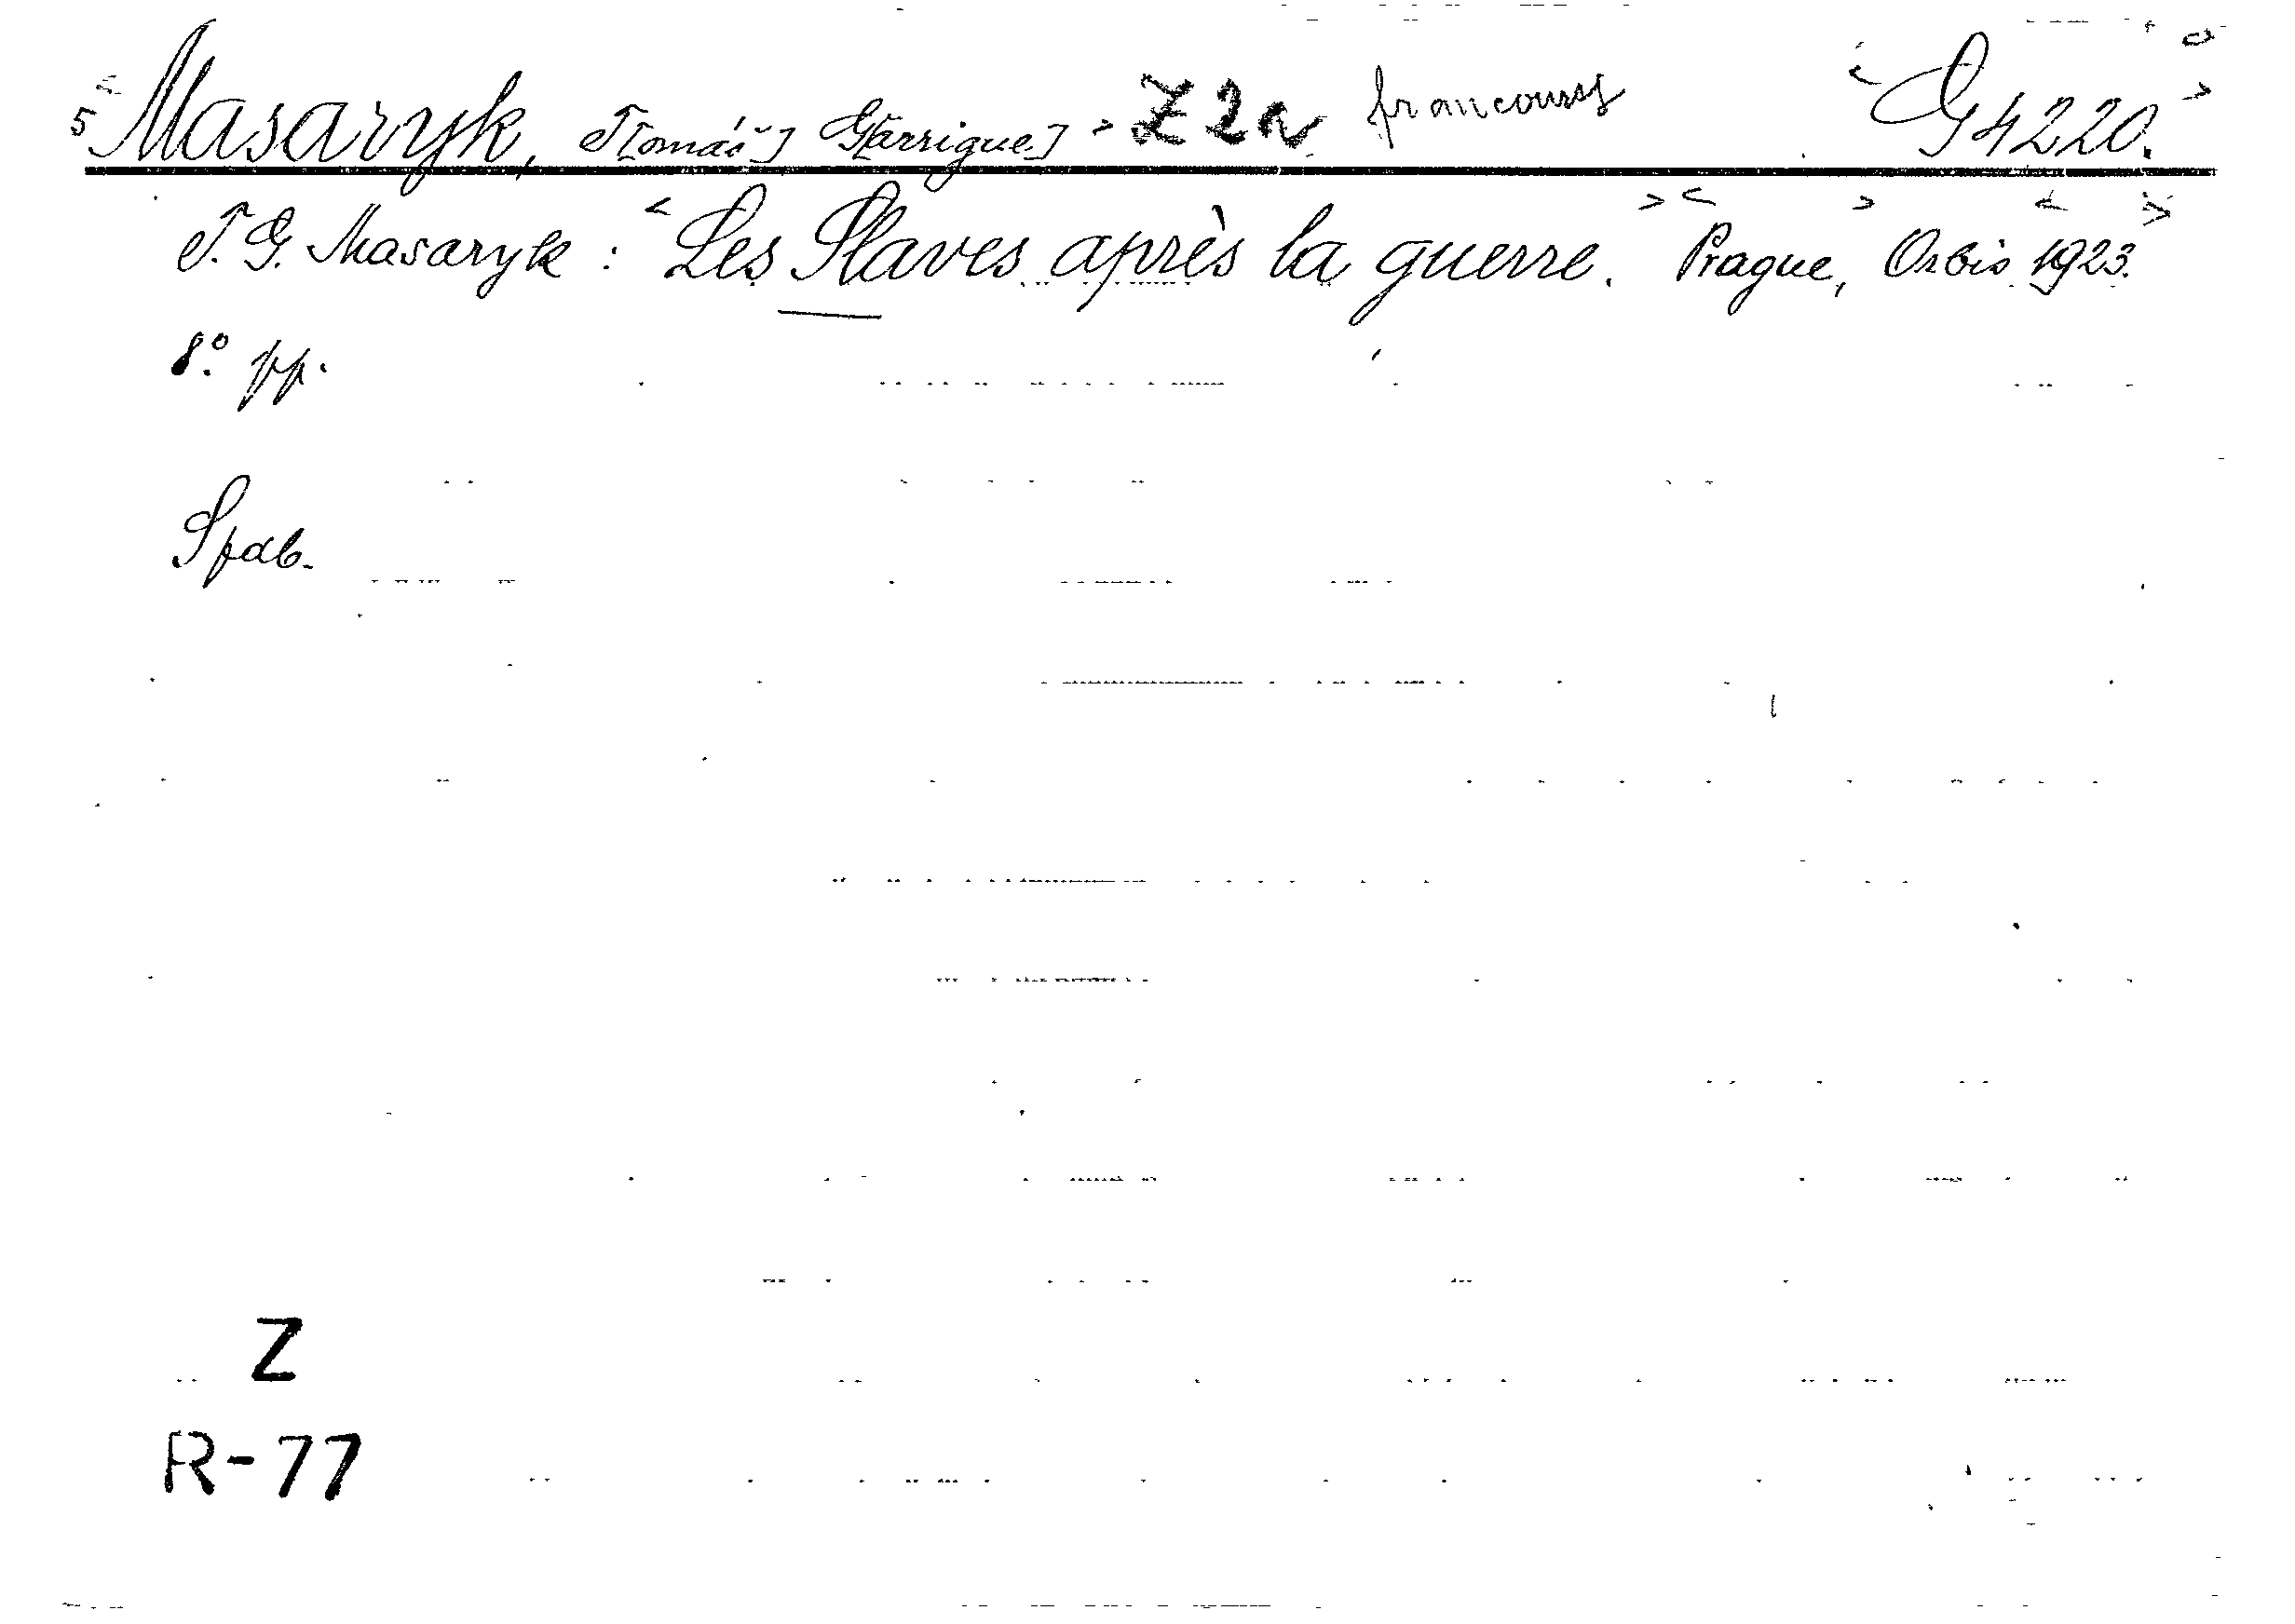 5 Masaryk, T[omáš] G[arrigue] Z 2a francouzsky G 4220.
T. G. Masaryk: Les Slaves après la guerre. Prague, Orbis 1923.
8.° pp.
Spdb.
Z
R-77